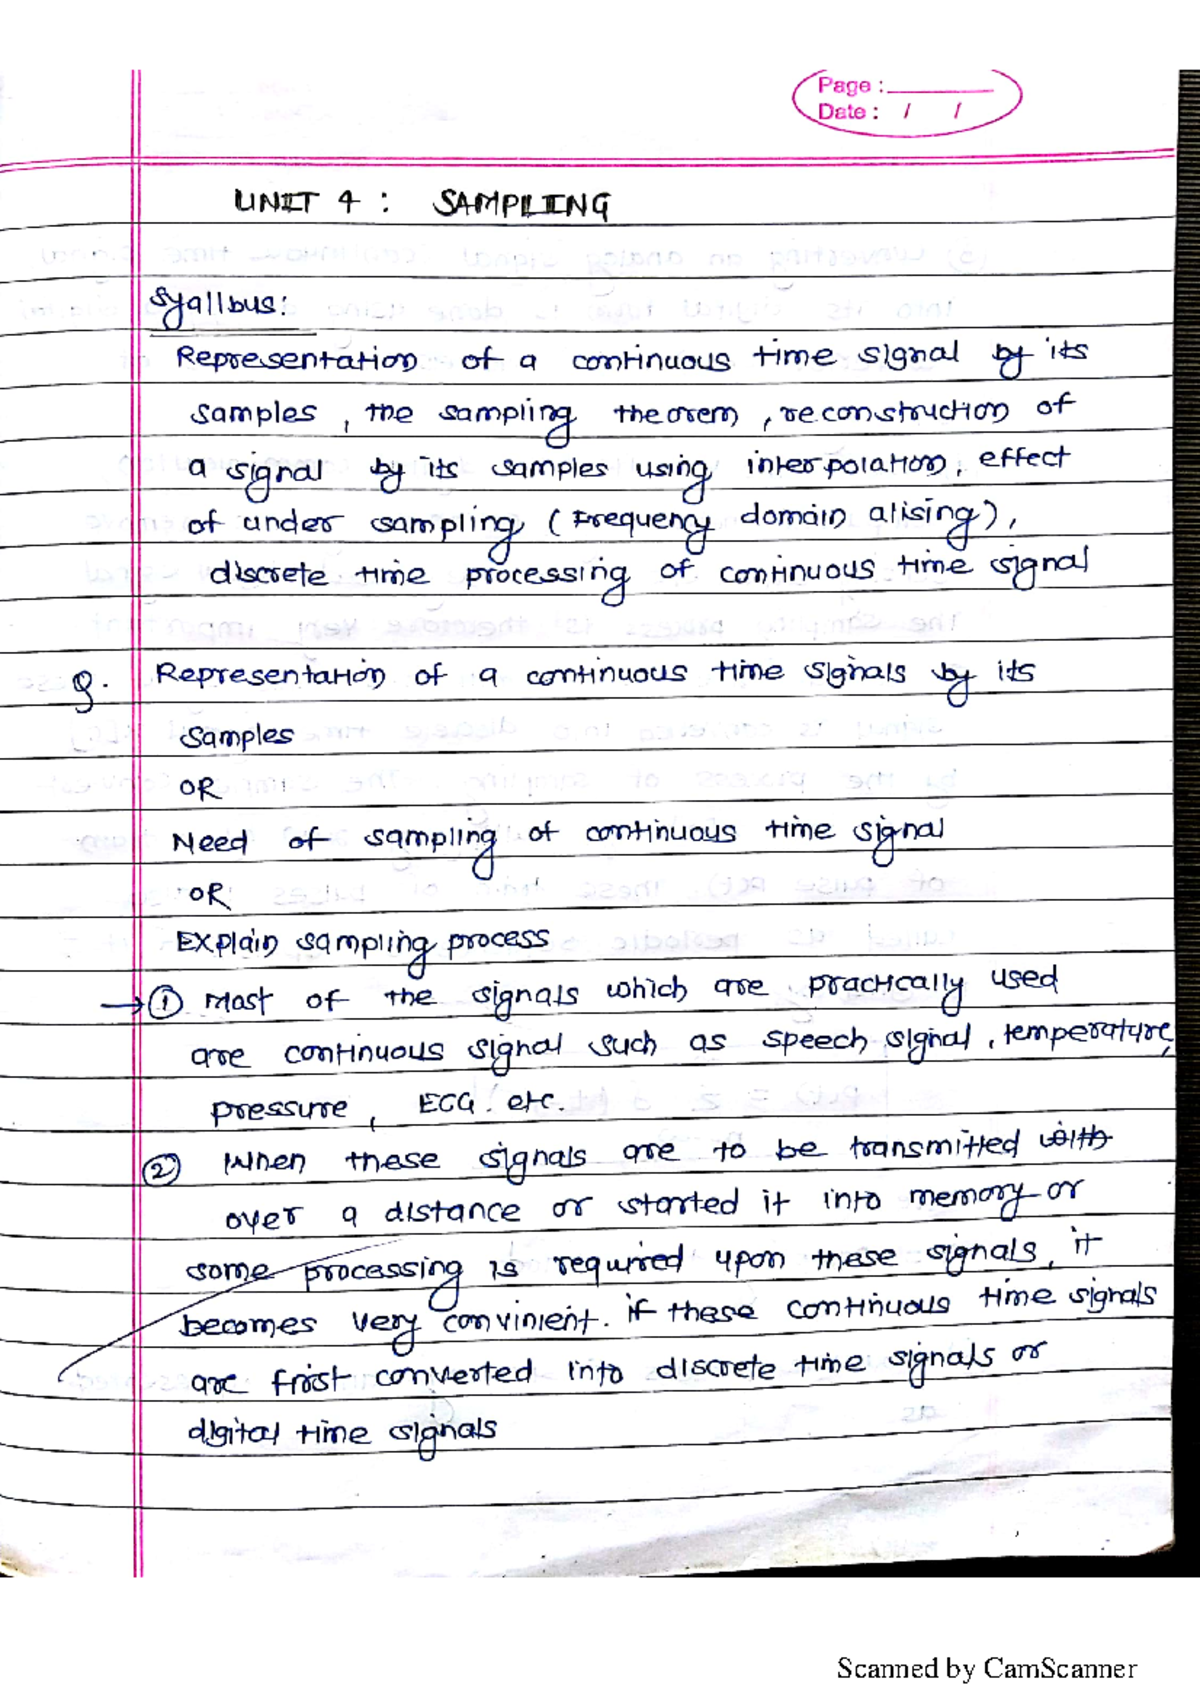 Page :
Date : / /
UNIT 4 : SAMPLING
Syallbus:
Representation of a continuous time signal by its
samples , the sampling theorem , reconstruction of
a signal by its samples using interpolation, effect
of under sampling ( Frequency domain alising ),
discrete time processing of continuous time signal
Q. Representation of a continuous time signals by its
samples
OR
Need of sampling of continuous time signal
OR
Explain sampling process
→ ① Most of the signals which are practically used
are continuous signal such as speech signal , temperature,
pressure , ECG . etc.
② When these signals are to be transmitted with
over a distance or started it into memory or
some processing is required upon these signals, it
becomes very convinient. if these continuous time signals
are frist converted into discrete time signals or
digital time signals
Scanned by CamScanner